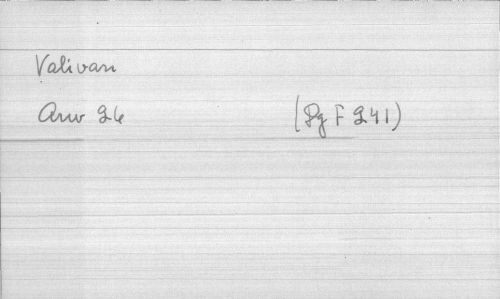 Valivan
Anv 26 (Pg F 241)